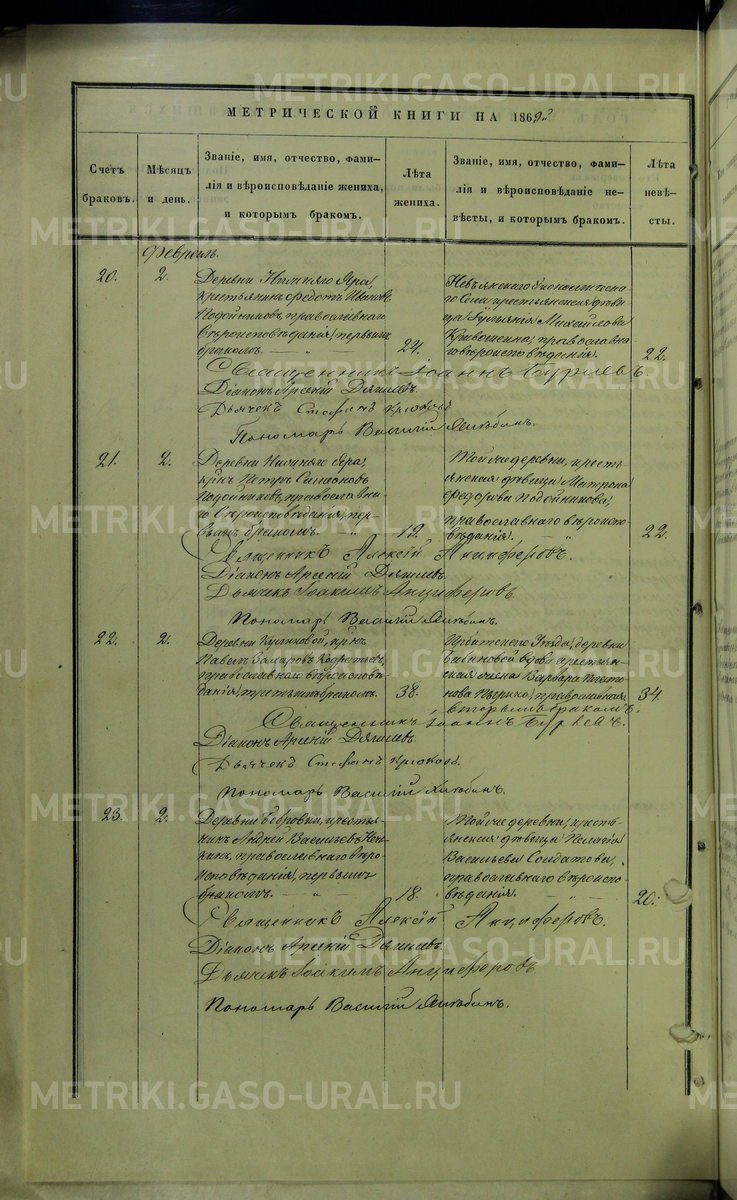 МЕТРИЧЕСКОЙ КНИГИ НА 1869
Счетъ браковъ.
Мѣсяцъ и день.
Званіе, имя, отчество, фами-
лія и вѣроисповѣданіе жениха,
и которымъ бракомъ.
Лѣта жениха.
Званіе, имя, отчество, фами-
лія и вѣроисповѣданіе не-
вѣсты, и которымъ бракомъ.
Лѣта невѣ-
сты.
Февраль.
20. 2.
Деревни Нижняго Яра,
крестьянинъ Ѳедотъ Ивановъ
Подойниковъ, православнаго
вѣроисповѣданія, первымъ
бракомъ. — „ —
24.
Невьянскаго
го села крестьянская дѣви-
ца Михайлова
православна-
го вѣроисповѣданія.
22.
Священникъ Іоаннъ
Діаконъ Арсеній Дягилевъ.
Дьячекъ Стефанъ Крюковъ
Пономарь Василій
21. 2.
Деревни Нижняго Яра,
кр-нъ Петръ Симеоновъ
Подойниковъ, православна-
го вѣроисповѣданія, пер-
вымъ бракомъ. — „
19.
Той же деревни, кресть-
янская дѣвица Матрона
Ѳедорова Подойникова,
православнаго вѣроиспо-
вѣданія. — „
22.
Священникъ Алексій Анциферовъ.
Діаконъ Арсеній Дягилевъ.
Дьячекъ Іоакимъ Анциферовъ
Пономарь Василій
22. 2.
Деревни
Павелъ
православнаго вѣроисповѣ-
данія, третьимъ бракомъ.
38.
Ирбитскаго Уѣзда, деревни
вдова крестьян-
ская жена Варвара
православная
вторымъ бракомъ.
34.
Священникъ Іоаннъ
Діаконъ Арсеній Дягилевъ.
Дьячекъ Стефанъ Крюковъ.
Пономарь Василій
23. 2.
Деревни Бобровки, крестья-
нинъ Андрей Васильевъ
православнаго вѣро-
исповѣданія, первымъ
бракомъ. — „ —
18.
Той же деревни, кресть-
янская дѣвица Пелагія
Васильева Солдатова,
православнаго вѣроиспо-
вѣданія. — „ —
20.
Священникъ Алексій Анциферовъ.
Діаконъ Арсеній Дягилевъ.
Дьячекъ Іоакимъ Анциферовъ
Пономарь Василій
METRIKI.GASO-URAL.RU